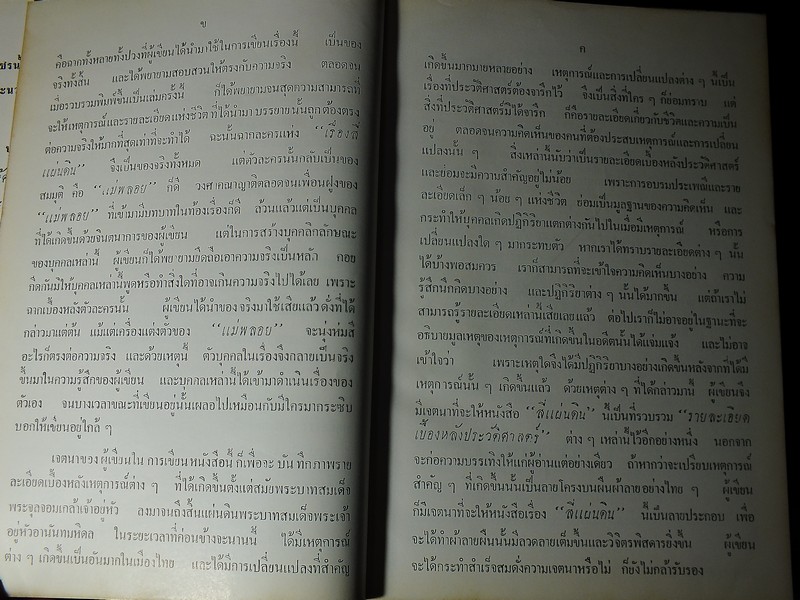 ข
คือฉากทั้งหลายทั้งปวงที่ผู้เขียนได้นำมาใช้ในการเขียนเรื่องนี้ เป็นของ
จริงทั้งสิ้น และได้พยายามสอบสวนให้ตรงกับความจริง ตลอดจน
เมื่อรวบรวมพิมพ์ขึ้นเป็นเล่มครั้งนี้ ก็ได้พยายามจนสุดความสามารถที่
จะให้เหตุการณ์และรายละเอียดแห่งชีวิต ที่ได้นำมาบรรยายนั้นถูกต้องตรง
ต่อความจริงให้มากที่สุดเท่าที่จะทำได้ ฉะนั้นฉากละครแห่ง "เรื่องสี่
แผ่นดิน" จึงเป็นของจริงทั้งหมด แต่ตัวละครนั้นกลับเป็นของ
สมมุติ คือ "แม่พลอย" ก็ดี วงศาคณาญาติตลอดจนเพื่อนฝูงของ
"แม่พลอย" ที่เข้ามามีบทบาทในท้องเรื่องก็ดี ล้วนแล้วแต่เป็นบุคคล
ที่ได้เกิดขึ้นด้วยจินตนาการของผู้เขียน แต่ในการสร้างบุคคลิกลักษณะ
ของบุคคลเหล่านี้ ผู้เขียนก็ได้พยายามยึดถือเอาความจริงเป็นหลัก คอย
กีดกันมิให้บุคคลเหล่านี้พูดหรือทำสิ่งใดที่อาจเกินความจริงไปได้เลย เพราะ
ฉากเบื้องหลังตัวละครนั้น ผู้เขียนได้นำของจริงมาใช้เสียแล้ว ดั่งที่ได้
กล่าวมาแต่ต้น แม้แต่เครื่องแต่งตัวของ "แม่พลอย" จะนุ่งห่มสี
อะไรก็ตรงต่อความจริง และด้วยเหตุนี้ ตัวบุคคลในเรื่องจึงกลายเป็นจริง
ขึ้นมาในความรู้สึกของผู้เขียน และบุคคลเหล่านี้ได้เข้ามาดำเนินเรื่องของ
ตัวเอง จนบางเวลาขณะที่เขียนอยู่นั้นเผลอไปเหมือนกับมีใครมากระซิบ
บอกให้เขียนอยู่ใกล้ ๆ
เจตนาของผู้เขียนในการเขียนหนังสือนี้ ก็เพื่อจะบันทึกภาพราย
ละเอียดเบื้องหลังเหตุการณ์ต่าง ๆ ที่ได้เกิดขึ้นตั้งแต่สมัยพระบาทสมเด็จ
พระจุลจอมเกล้าเจ้าอยู่หัว ลงมาจนถึงสิ้นแผ่นดินพระบาทสมเด็จพระเจ้า
อยู่หัวอานันทมหิดล ในระยะเวลาที่ค่อนข้างจะนานนี้ ได้มีเหตุการณ์
ต่าง ๆ เกิดขึ้นเป็นอันมากในเมืองไทย และได้มีการเปลี่ยนแปลงที่สำคัญ
ค
เกิดขึ้นมากมายหลายอย่าง เหตุการณ์และการเปลี่ยนแปลงต่าง ๆ นี้เป็น
เรื่องที่ประวัติศาสตร์ต้องจารึกไว้ จึงเป็นสิ่งที่ใคร ๆ ก็ย่อมทราบ แต่
สิ่งที่ประวัติศาสตร์มิได้จารึก ก็คือรายละเอียดเกี่ยวกับชีวิตและความเป็น
อยู่ ตลอดจนความคิดเห็นของคนที่ต้องประสบเหตุการณ์และการเปลี่ยน
แปลงนั้น ๆ สิ่งเหล่านี้นับว่าเป็นรายละเอียดเบื้องหลังประวัติศาสตร์
และย่อมจะมีความสำคัญอยู่ไม่น้อย เพราะการอบรมประเพณีและราย
ละเอียดเล็ก ๆ น้อย ๆ แห่งชีวิต ย่อมเป็นมูลฐานของความคิดเห็น และ
กระทำให้บุคคลเกิดปฏิกิริยาแตกต่างกันไปในเมื่อมีเหตุการณ์ หรือการ
เปลี่ยนแปลงใด ๆ มากระทบตัว หากเราได้ทราบรายละเอียดต่าง ๆ นั้น
ได้บ้างพอสมควร เราก็สามารถที่จะเข้าใจความคิดเห็นบางอย่าง ความ
รู้สึกนึกคิดบางอย่าง และปฏิกิริยาต่าง ๆ นั้นได้มากขึ้น แต่ถ้าเราไม่
สามารถรู้รายละเอียดเหล่านี้เสียเลยแล้ว ต่อไปเราก็ไม่อาจอยู่ในฐานะที่จะ
อธิบายมูลเหตุของเหตุการณ์ที่เกิดขึ้นในอดีตนั้นได้แจ่มแจ้ง และไม่อาจ
เข้าใจว่า เพราะเหตุใดจึงได้มีปฏิกิริยาบางอย่างเกิดขึ้นหลังจากที่ได้มี
เหตุการณ์นั้น ๆ เกิดขึ้นแล้ว ด้วยเหตุต่าง ๆ ที่ได้กล่าวมานี้ ผู้เขียนจึง
มีเจตนาที่จะให้หนังสือ "สี่แผ่นดิน" นี้เป็นที่รวบรวม "รายละเอียด
เบื้องหลังประวัติศาสตร์" ต่าง ๆ เหล่านี้ไว้อีกอย่างหนึ่ง นอกจาก
จะก่อความบรรเทิงให้แก่ผู้อ่านแต่อย่างเดียว ถ้าหากว่าจะเปรียบเหตุการณ์
สำคัญ ๆ ที่เกิดขึ้นนั้นเป็นลายโครงบนผืนผ้าลายอย่างไทย ๆ ผู้เขียน
ก็มีเจตนาที่จะให้หนังสือเรื่อง "สี่แผ่นดิน" นี้เป็นลายประกอบ เพื่อ
จะได้ทำผ้าลายผืนนั้นมีลวดลายเต็มขึ้นและวิจิตรพิสดารยิ่งขึ้น ผู้เขียน
จะได้กระทำสำเร็จสมดั่งความเจตนาหรือไม่ ก็ยังไม่กล้ารับรอง